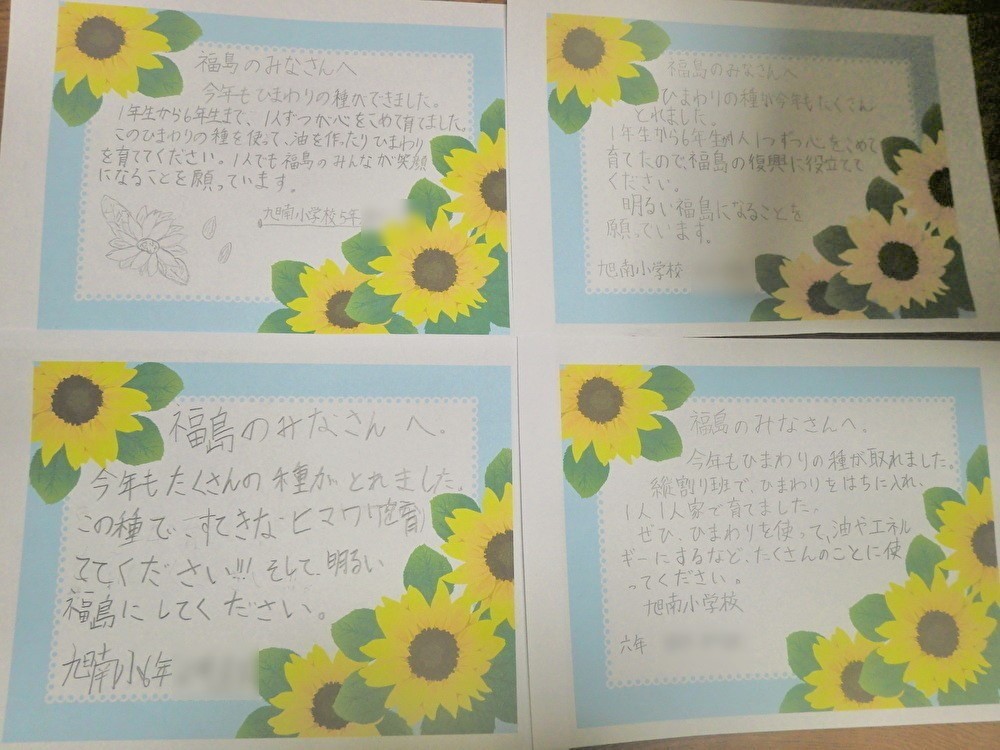 福島のみなさんへ
今年もひまわりの種ができました。
1年生から6年生まで、1人ずつが心をこめて育てました。
このひまわりの種を使って、油を作ったりひまわり
を育ててください。1人でも福島のみんなが笑顔
になることを願っています。
旭南小学校5年
福島のみなさんへ
ひまわりの種が今年もたくさん
とれました。
1年生から6年生が1人1つずつ心をこめて
育てたので、福島の復興に役立てて
ください。
明るい福島になることを
願っています。
旭南小学校
福島のみなさんへ。
今年もたくさんの種がとれました。
この種で、すてきなヒマワリを育
ててください!!! そして、明るい
福島にしてください。
旭南小6年
福島のみなさんへ。
今年もひまわりの種が取れました。
縦割り班で、ひまわりをはちに入れ、
1人1人家で育てました。
ぜひ、ひまわりを使って、油やエネル
ギーにするなど、たくさんのことに使
ってください。
旭南小学校
六年